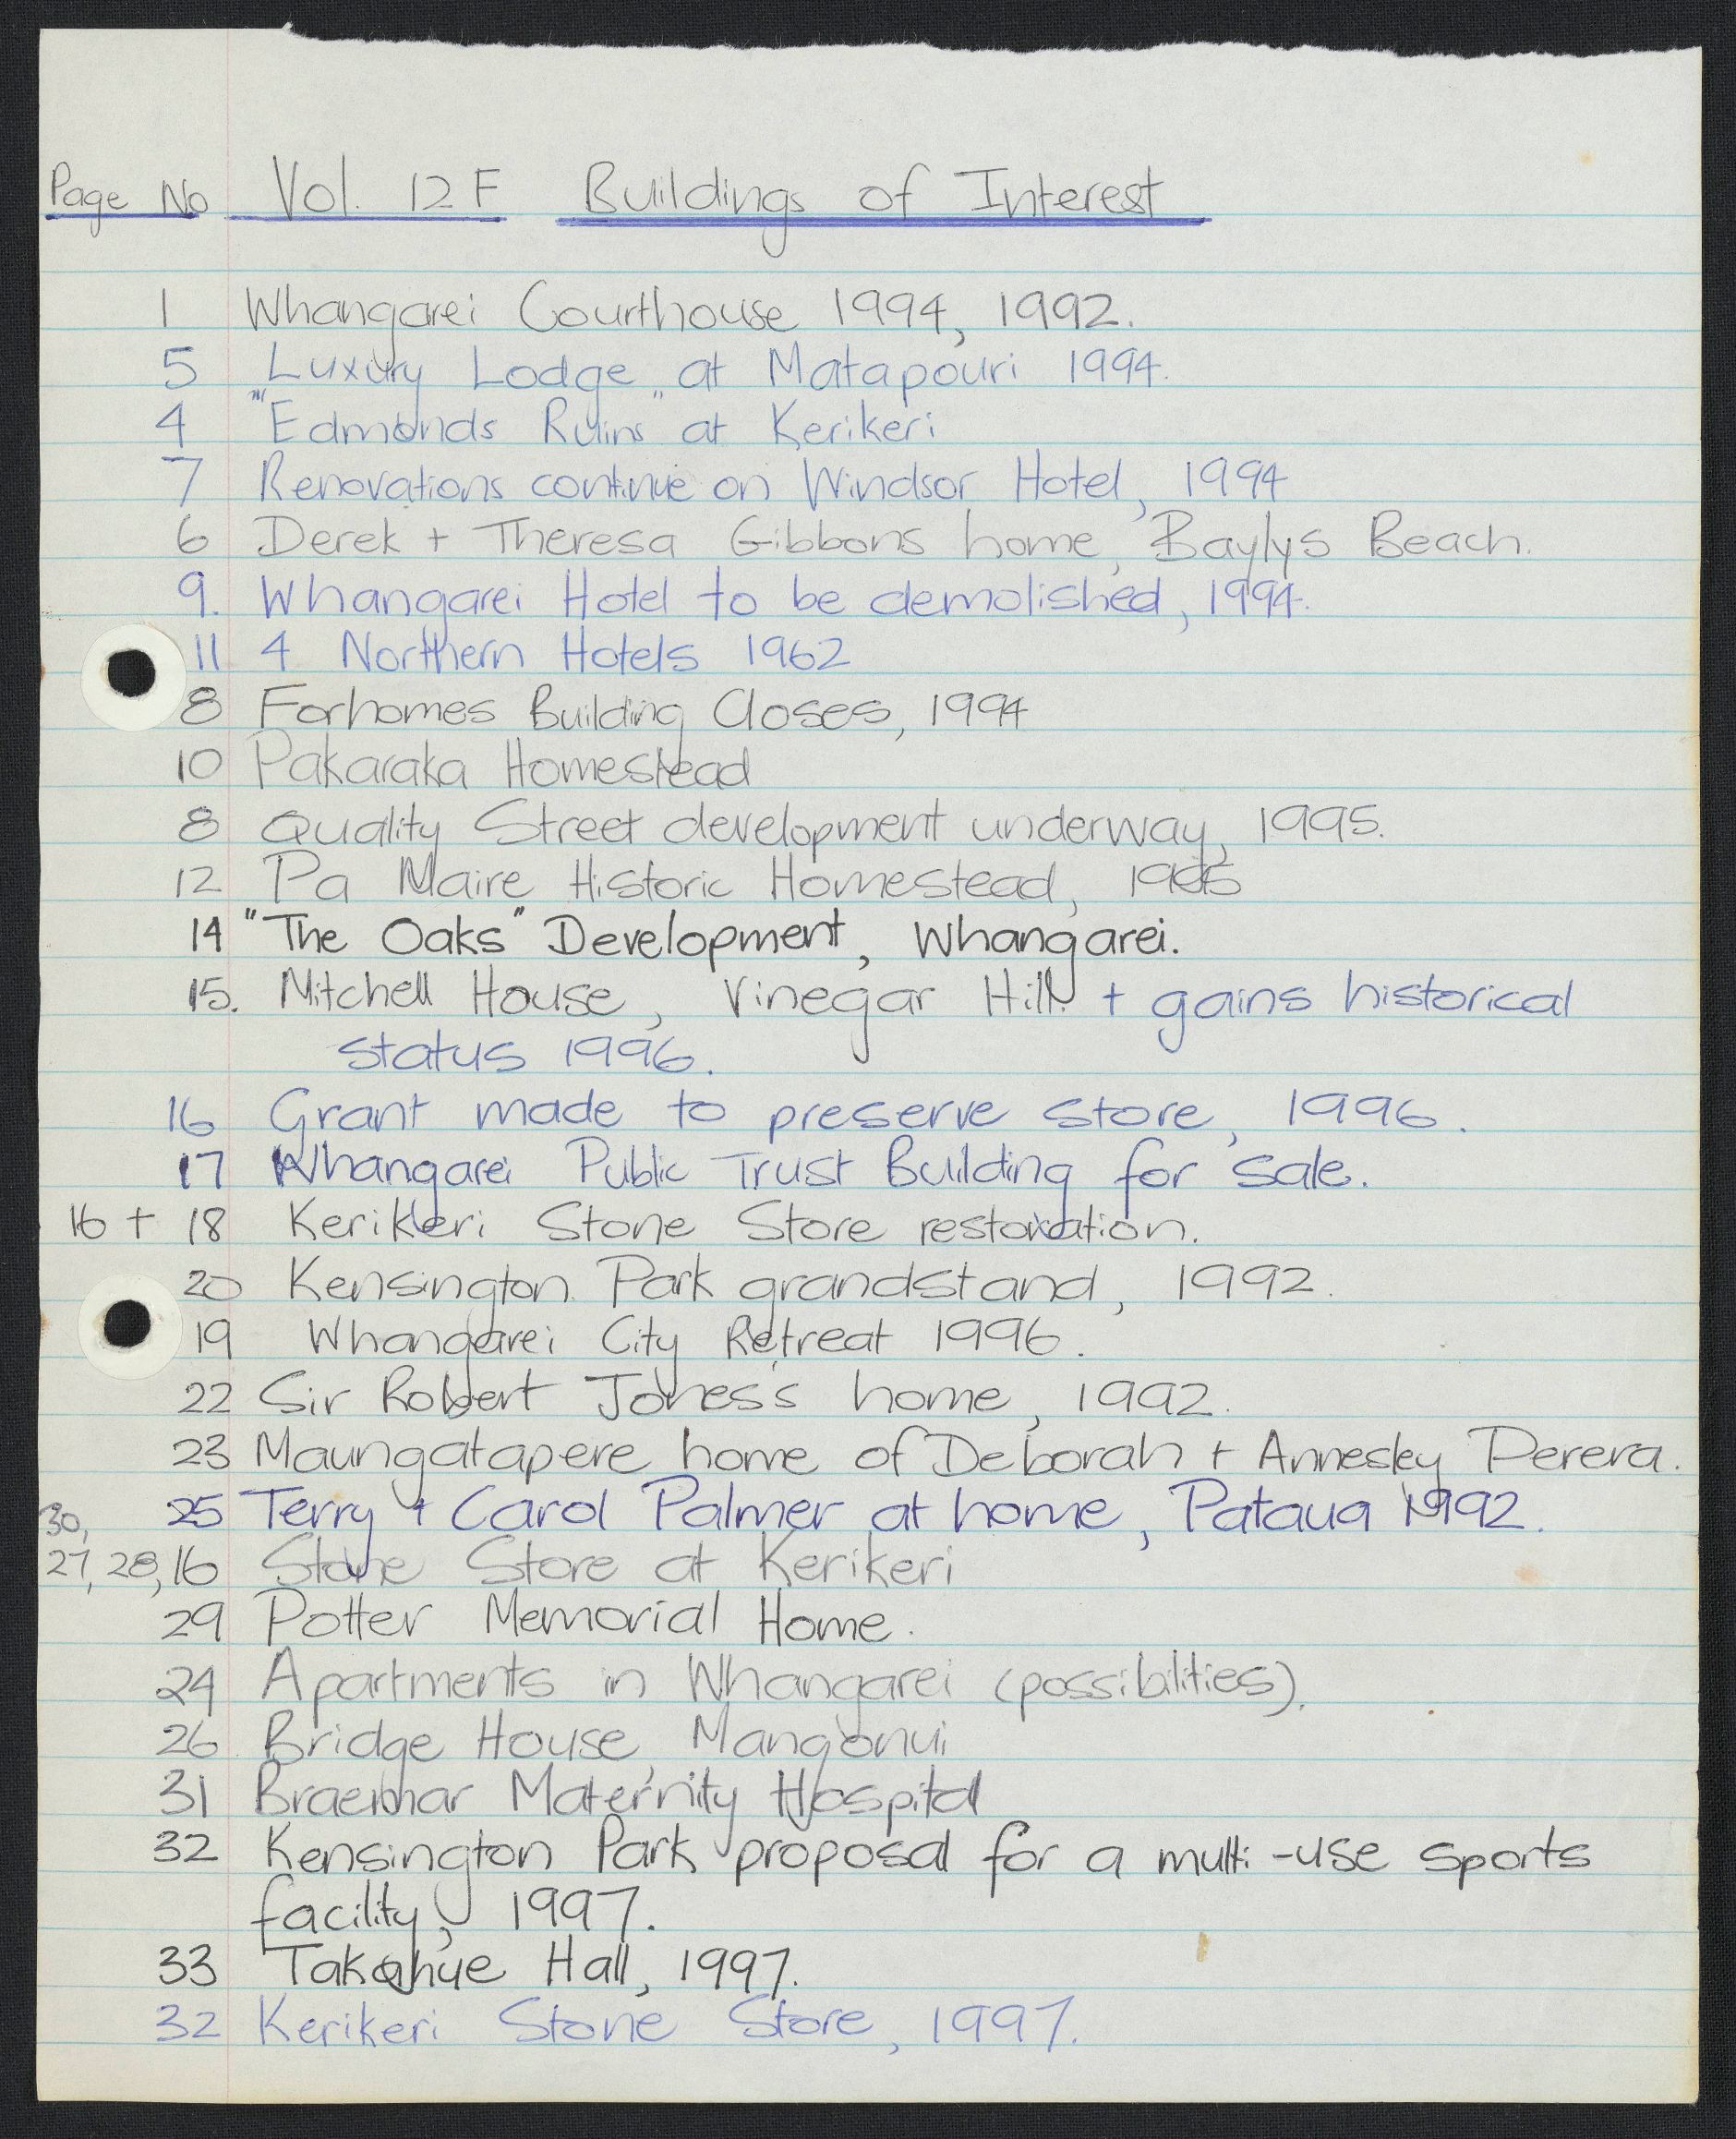 Page No Vol. 12F Buildings of Interest
1 Whangarei Courthouse 1994, 1992.
5 "Luxury Lodge" at Matapouri 1994.
4 "Edmonds Ruins" at Kerikeri
7 Renovations continue on Windsor Hotel, 1994
6 Derek + Theresa Gibbons home, Baylys Beach.
9. Whangarei Hotel to be demolished, 1994.
11 4 Northern Hotels 1962
8 Forhomes Building Closes, 1994
10 Pakaraka Homestead
8 Quality Street development underway, 1995.
12 Pa Maire Historic Homestead, 1995
14 "The Oaks" Development, Whangarei.
15. Mitchell House, Vinegar Hill. + gains historical
status 1996.
16 Grant made to preserve store, 1996.
17 Whangarei Public Trust Building for sale.
16 + 18 Kerikeri Stone Store restoration.
20 Kensington Park grandstand, 1992.
19 Whangarei City Retreat 1996.
22 Sir Robert Jones's home, 1992.
23 Maungatapere home of Deborah + Annesley Perera.
25 Terry + Carol Palmer at home, Pataua 1992.
30,
27, 28, 16 Stone Store at Kerikeri
29 Potter Memorial Home.
24 Apartments in Whangarei (possibilities).
26 Bridge House, Mangonui
31 Braemar Maternity Hospital
32 Kensington Park proposal for a multi-use sports
facility, 1997.
33 Takahue Hall, 1997.
32 Kerikeri Stone Store, 1997.